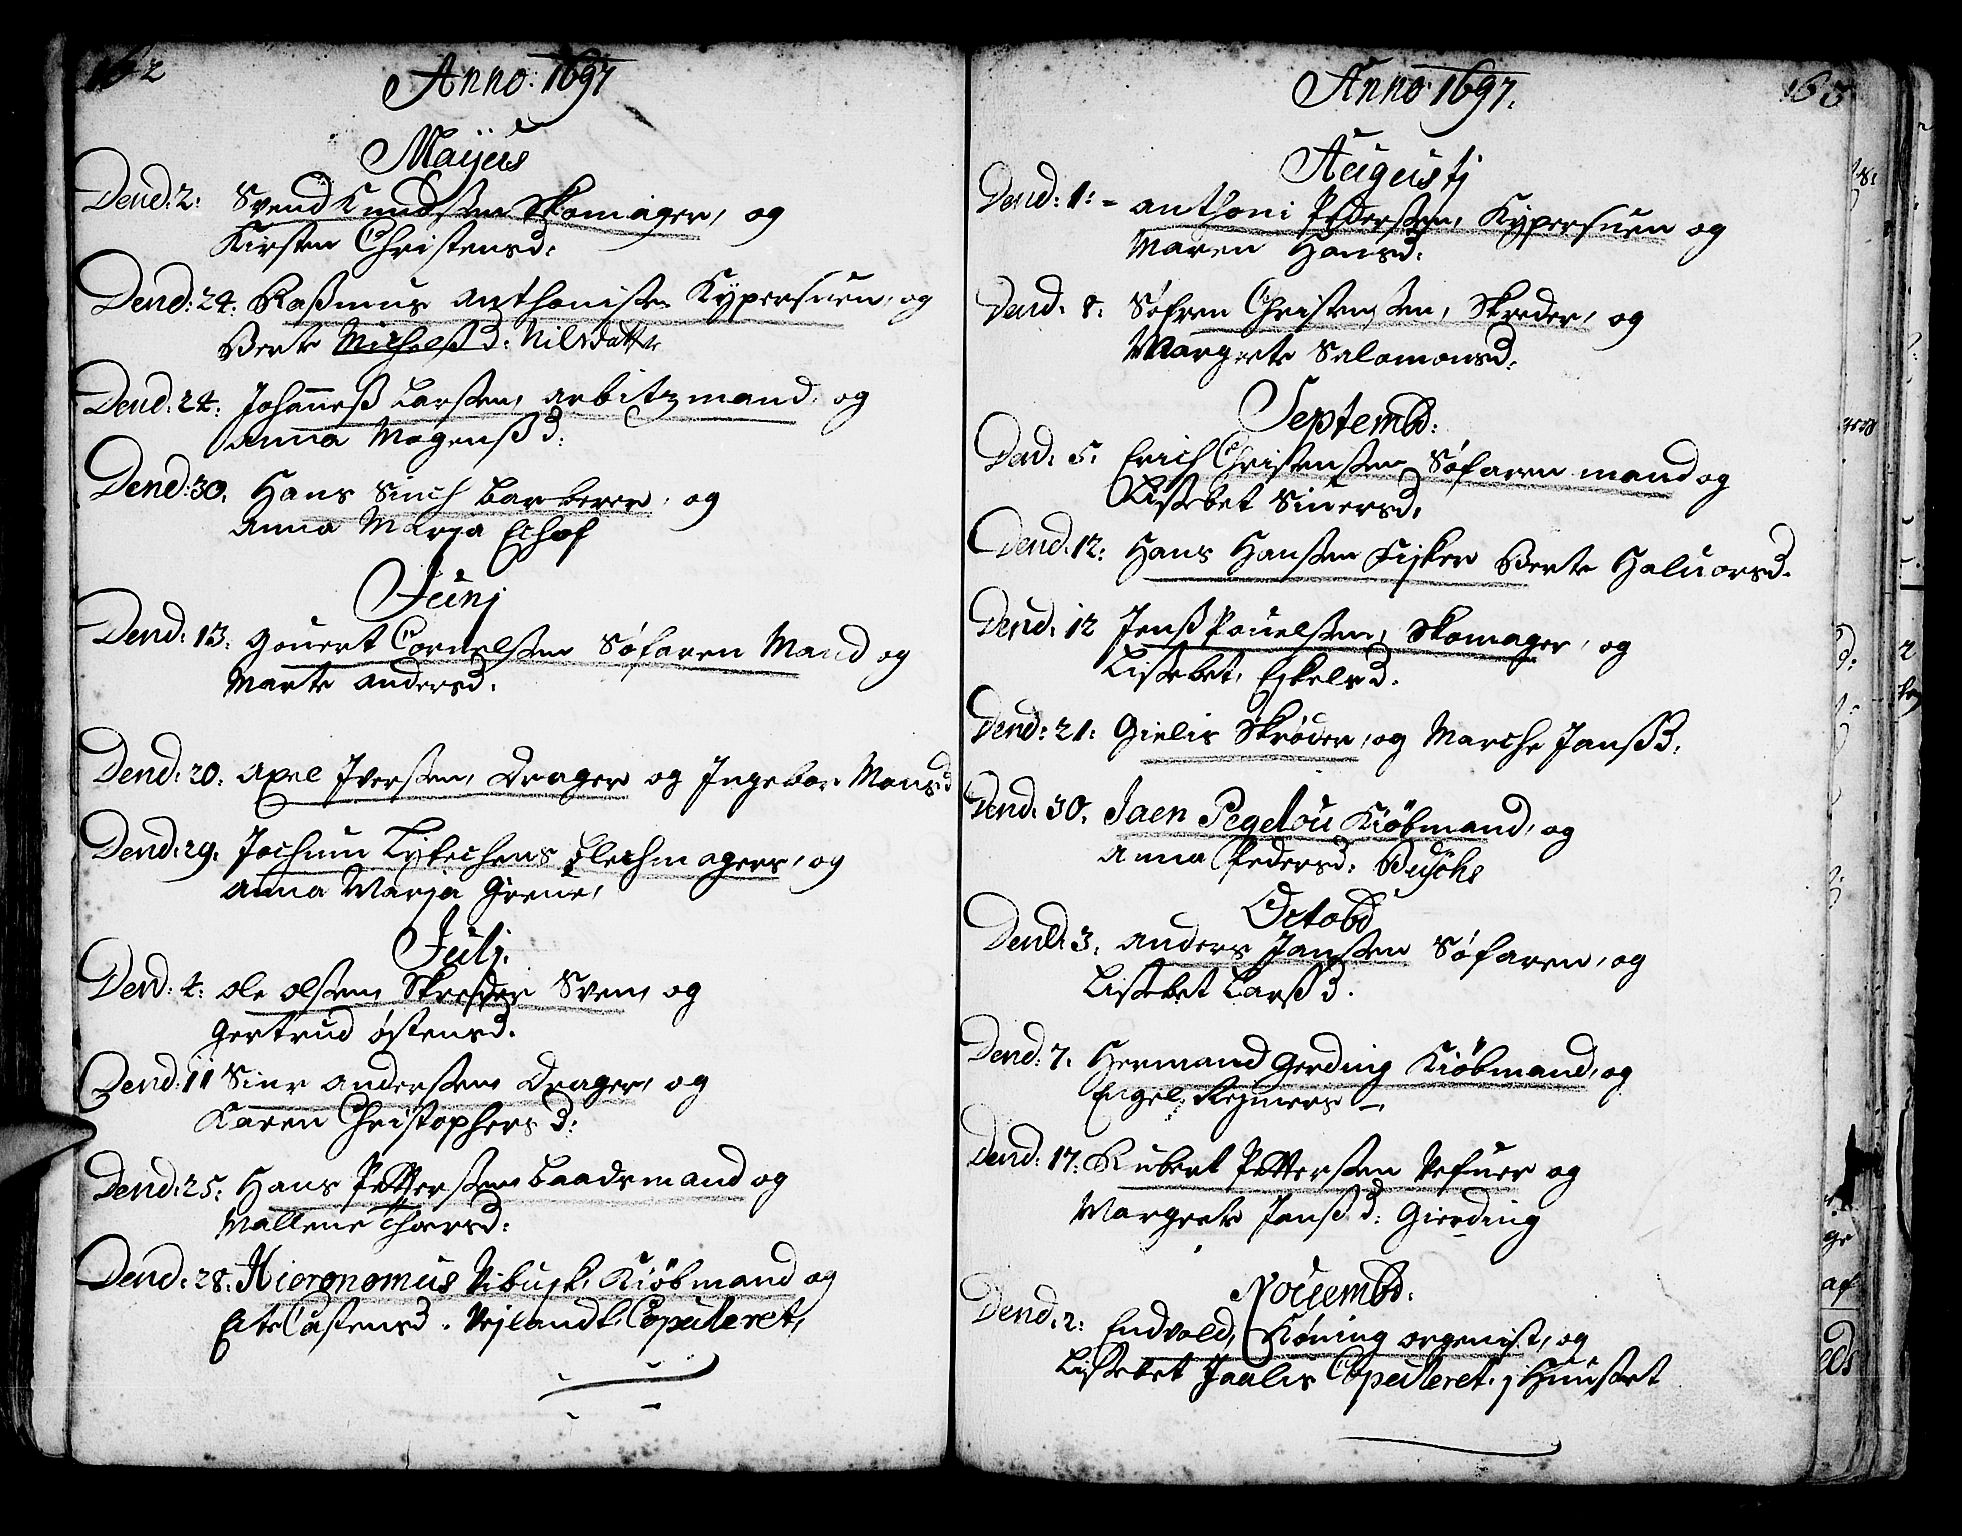 162
Anno: 1697
Maijus
Dend: 2: Svend Knudsen Skomager, og
Kirsten Christensd:
Dend: 24: Rasmus Anthonisen Kypersuen, og
Berte Michelsd: Nilsdatter
Dend: 24: Johannes Larsen, arbitzmand, og
Anna Mogensd:
Dend: 30. Hans Sinch barberer, og
Anna Marja Echof
Junj
Dend: 13: Gouert Cornelsen Søfaren Mand og
Marte Andersd.
Dend: 20: Axel Iversen, Drager og Ingebor Monsd
Dend: 29. Jochum Lytechens flechmagers, og
Anna Marja Grene,
Julj.
Dend: 4: Ole Olsen, Skreder Sven, og
Gertrud Østensd.
Dend: 11 Siur Andersen Drager, og
Karen Christophersd:
Dend: 25: Hans Pettersen baadsmand og
Mallene Thoersd:
Dend: 28: Hieronomus Kiøbmand og
Castensd. Copuleret,
163
Anno 1697.
Augustj
Dend: 1: - Anthoni Pedersen, Kypersuen og
Maren Hansd.
Dend. 8: Søfren Christensen, Skreder, og
Margrete Salomonsd:
Septembd:
Dend. 5. Erich Christensen Søfaren mand og
Lisebet Siuersd.
Dend. 12: Hans Hansen Fisker Berte Haluorsd.
Dend: 12 Jens Pouelsen, Skomager, og
Lisebet, Eskelsd.
Dend: 21: Gielis Skrøder, og Marche Jansd.
Dend: 30. Jaen Pegelou Kiøbmand, og
Anna Pedersd:
Octobd
Dend: 3. Anders Jansen Søfaren, og
Lisebet Larsd.
Dend: 7. Hermand Gerding Kiøbmand, og
Engel Reimers
Dend: 17: Rubert Pettersen Vefuer og
Margrete Jansd: Gierding
Nouembd.
Dend: 2: Endvold, Køning orgenist, og
Lisebet Copuleret. j Huuset